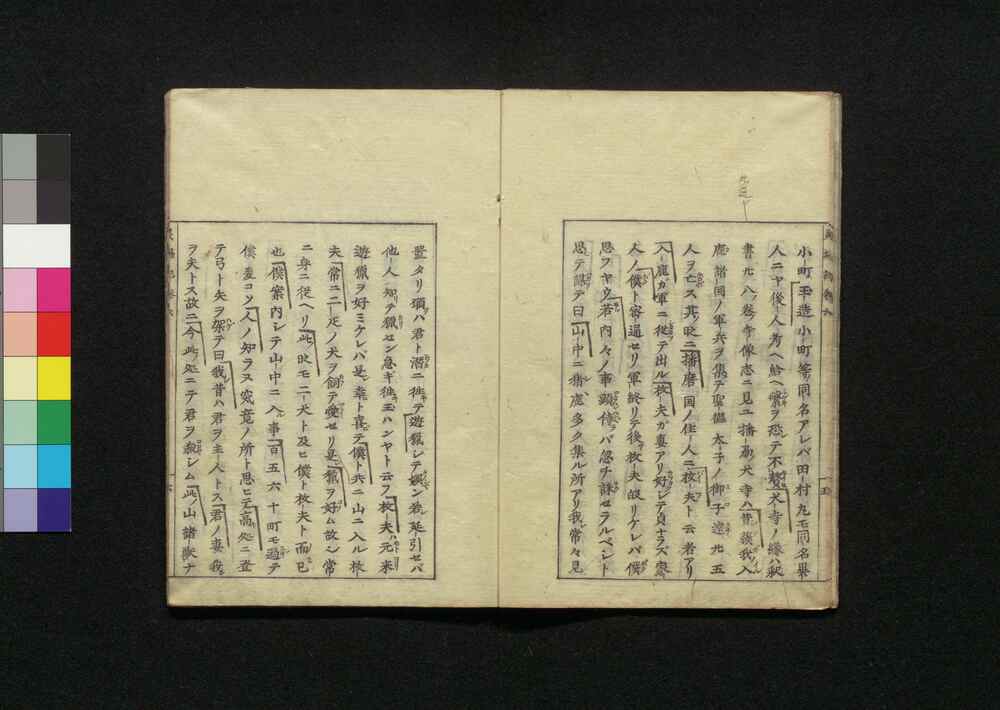 小町玉造小町等同名アレバ田村丸モ同名異
人ニヤ後人考ヘ給ヘ繁ヲ恐テ不贅犬寺ノ縁ハ釈
書廿八巻ノ寺像志ニ見ユ播州犬寺ハ昔蘇我入
鹿諸国ノ軍兵ヲ集テ聖徳太子ノ御子達廿五
人ヲ亡ス其時ニ播磨国ノ住人ニ枚夫ト云者アリ
入鹿ガ軍ニ従テ出ル枚夫ガ妻アリ好シテ貞ナラズ密
人ノ僕ト密通セリ軍終リテ後枚夫故リケレバ僕
思フヤウ若内々ノ事顕侍ラバ忽チ誅セラルベシト
思テ謀テ曰山中ニ猪鹿多ク集ル所アリ我常々見
置タリ頃ハ君ト潜ニ往テ遊猟シテ娯ン我延引セバ
他人知テ猟セン急ギ往玉ハンヤト云フ枚夫元来
遊猟ヲ好ミケレバ是幸ト喜テ僕ト共ニ山ニ入ル枚
夫常ニ二疋ノ犬ヲ飼テ愛セリ是猟ヲ好ム故ン常
ニ身ニ従ヘリ此時モ二犬ト及ヒ僕ト枚夫ト而已
也僕案内シテ山中ニ入事百五六十町モ過テ
僕爰コソ人ノ知ラヌ究竟ノ所ト思ヒテ高処ニ登
テ弓ト矢ヲ架テ曰我昔ハ君ヲ主人トス君ノ妻我
ヲ夫トス故ニ今此処ニテ君ヲ殺シム此ノ山諸獣ナ